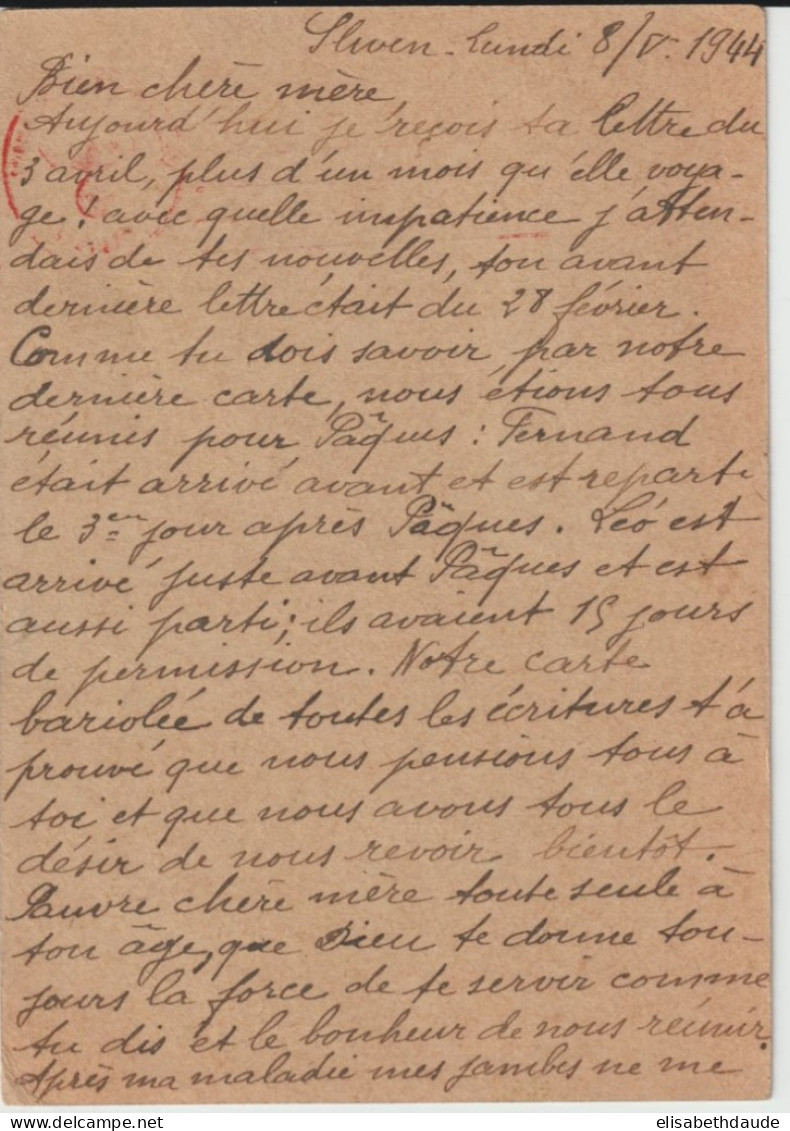 Sliven - Lundi 8/V. 1944
Bien chère mère
Aujourd'hui je reçois ta lettre du
3 avril, plus d'un mois qu'elle voya-
ge! avec quelle impatience j'atten-
dais de tes nouvelles, ton avant
dernière lettre était du 28 février.
Comme tu dois savoir par notre
dernière carte, nous étions tous
réunis pour Pâques : Fernand
était arrivé avant et est reparti
le 3em jour après Pâques. Léo est
arrivé juste avant Pâques et est
aussi parti; ils avaient 15 jours
de permission. Notre carte
bariolée de toutes les écritures t'a
prouvé que nous pensions tous à
toi et que nous avons tous le
désir de nous revoir bientôt.
Pauvre chère mère toute seule à
ton âge, que Dieu te donne tou-
jours la force de te servir comme
tu dis et le bonheur de nous réunir.
Après ma maladie mes jambes ne me
elisabethdaude